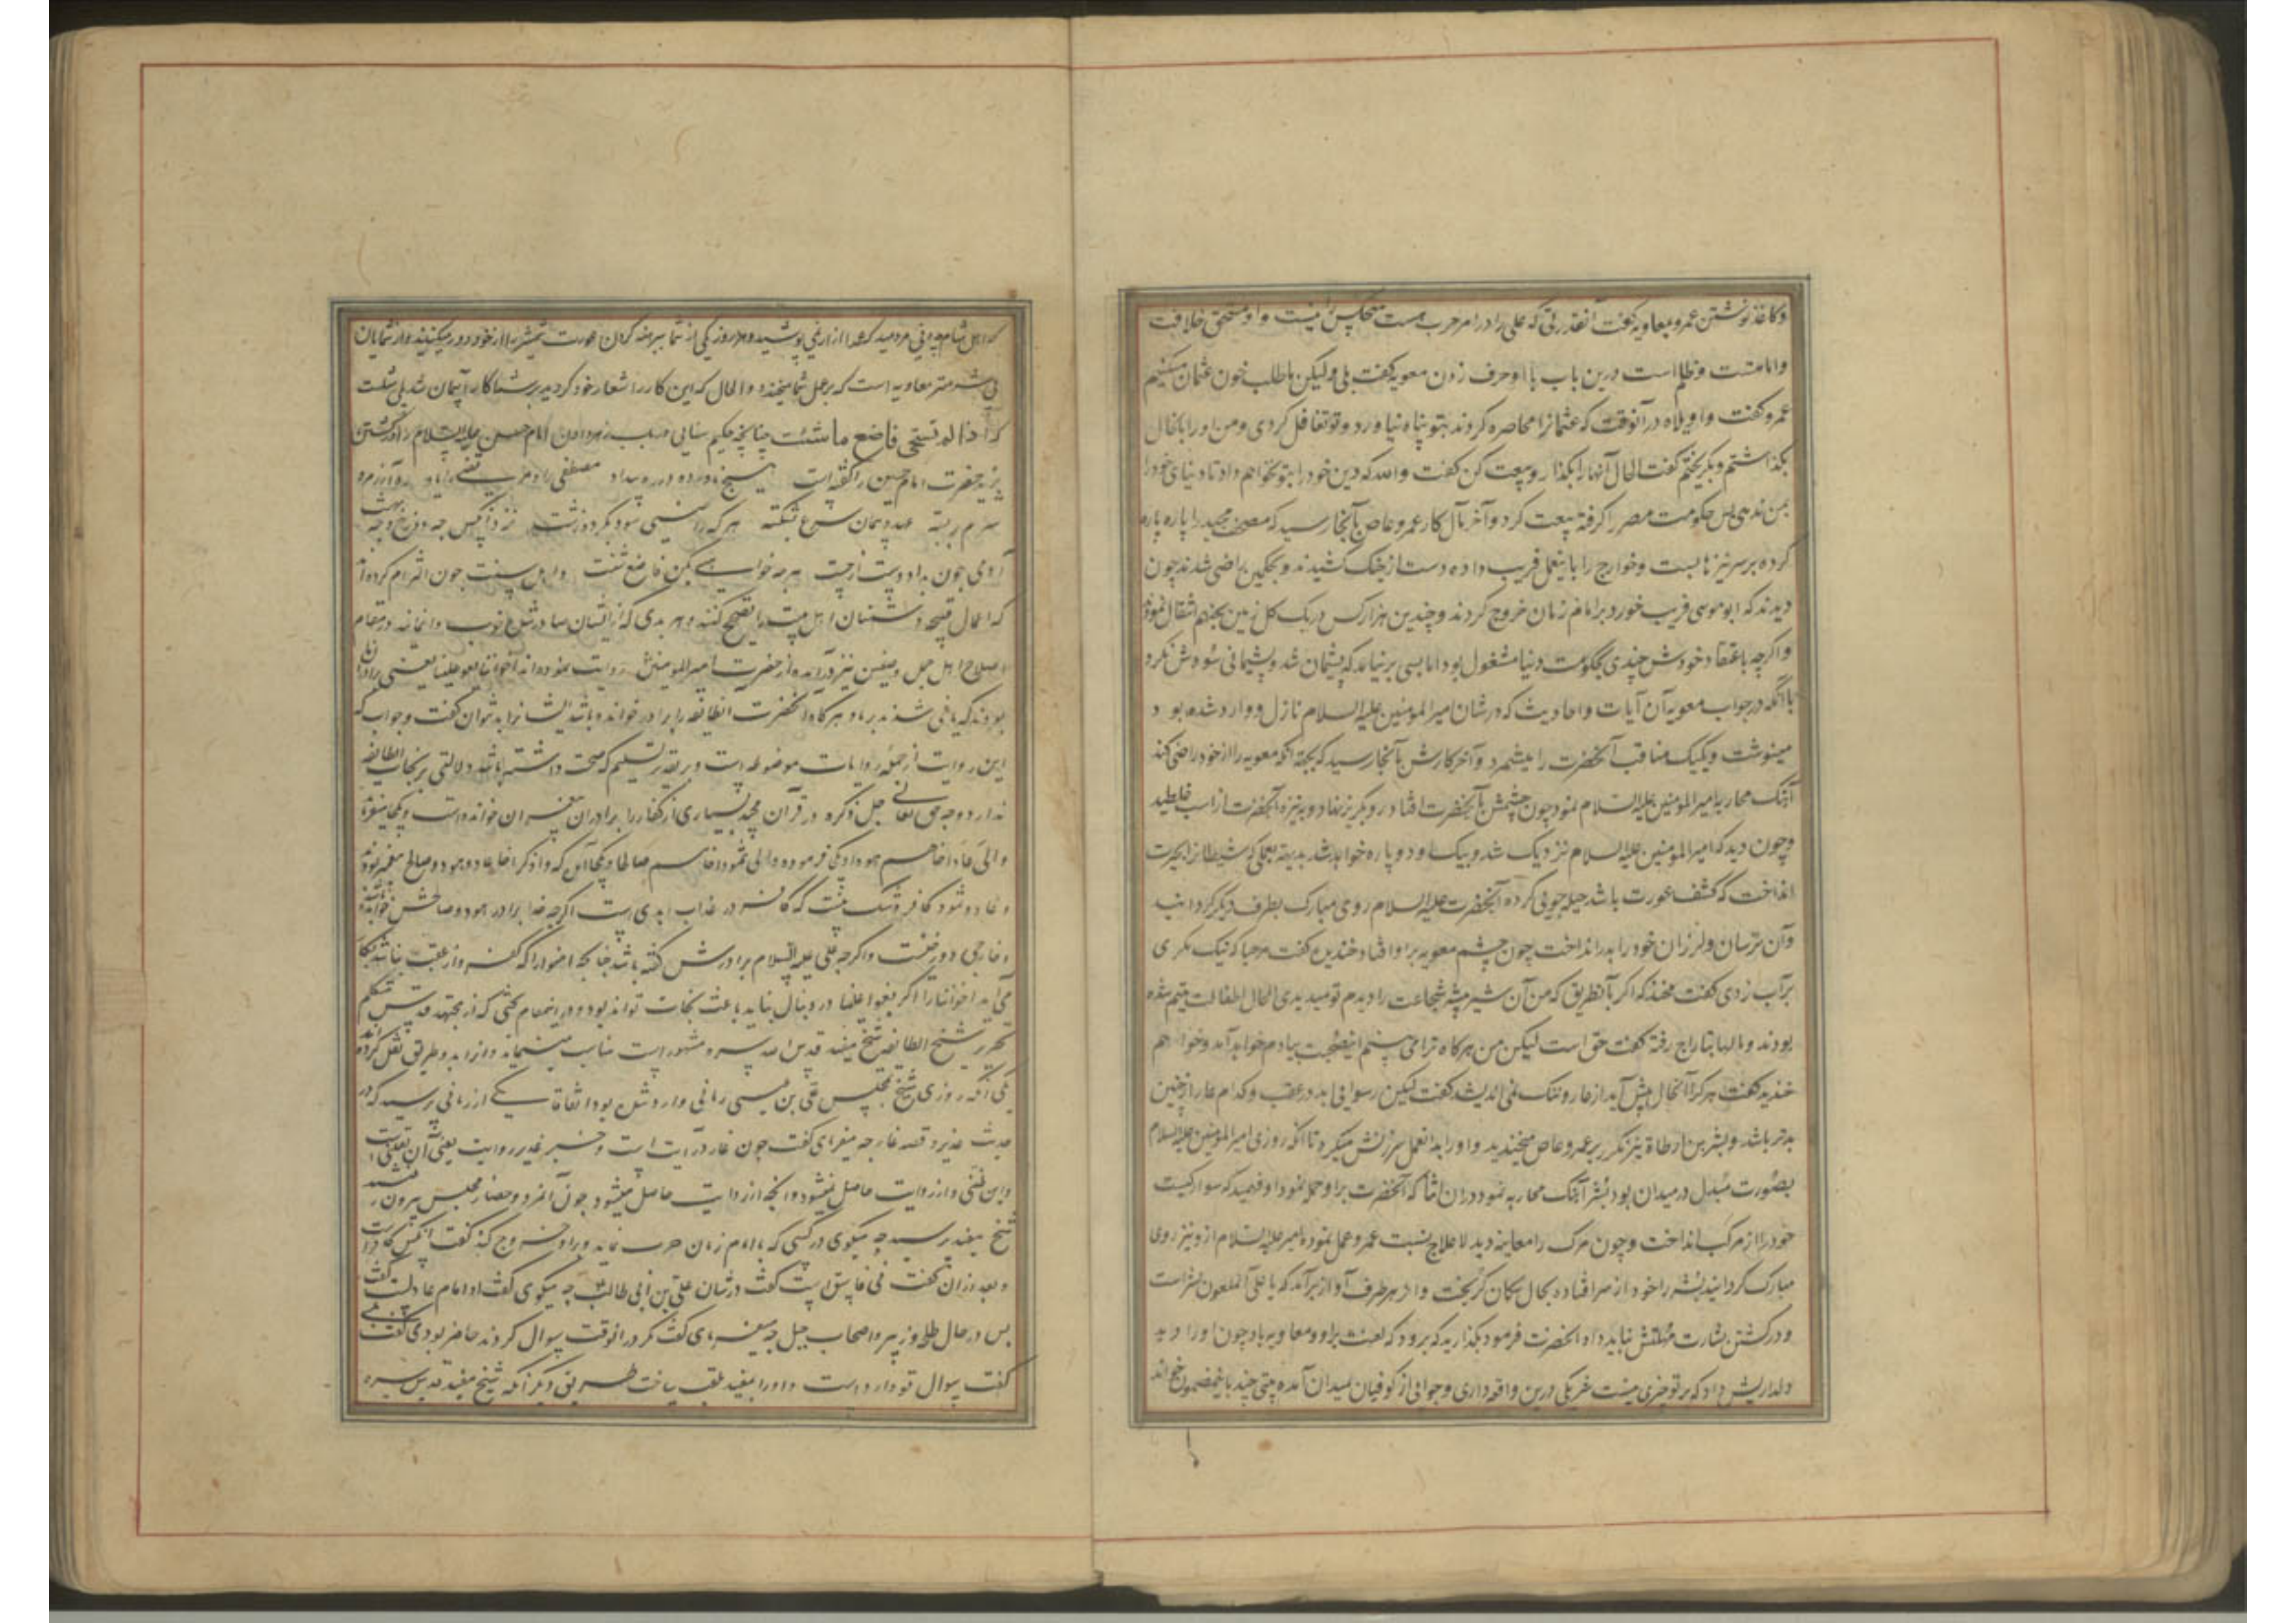 وکاغذ نوشتن عمرو بمعاویه گفت آنقدر رتی که علی را در امر حرب هست هیچکس را نیست و او مستحق خلافت
و امامتست و ظلم است درین باب با او حرف زدن معویه گفت بلی ولیکن ما طلب خون عثمان میکنیم
عمرو گفت واویلاه در آنوقت که عثمانرا محاصره کردند بتو پناه نیاورد و تو تغافل کردی و من او را بانحال
بگذاشتم و بگریختم گفت الحال آنها را بگذار و بیعت کن گفت والله که دین خود را بتو نخواهم داد تا دنیای خود را
بمن ندهی پس حکومت مصر را گرفته بیعت کرد و آخر مآل کار عمرو عاص بآنجا رسید که مصحف مجید را پاره پاره
کرده بر سر نیزها بست و خوارج را باینعمل فریب داده دست از جنگ کشیدند و بحکمین راضی شدند چون
دیدند که ابوموسی فریب خورد بر امام زمان خروج کردند و چندین هزار کس در یک کل زمین بجهنم انتقال نمودند
و اگرچه باعتقاد خودش چندی بحکومت دنیا مشغول بود اما بسی برنیامد که پشیمان شد و پشیمانی سودش نکرد
با آنکه در جواب معویه آن آیات و احادیث که در شان امیرالمومنین علیه السلام نازل و وارد شده بود
مینوشت و یکیک مناقب آنحضرت را میشمرد و آخر کارش بآنجا رسید که بجهة آنکه معویه را از خود راضی کند
آهنگ محاربه امیرالمومنین علیه السلام نمود چون چشمش بآنحضرت افتاد رو بگریز نهاد و بنیزه آنحضرت از اسب غلطید
و چون دید که امیرالمومنین علیه السلام نزدیک شد و بیک او دو پاره خواهد شد بدیهه بعملی که شیطانرا بحیرت
انداخت که کشف عورت باشد حیله جوئی کرده آنحضرت علیه السلام روی مبارک بطرف دیگر گردانید
و آن ترسان و لرزان خود را بدر انداخت چون چشم معویه بر او افتاد خندین گفت مرحبا که نیک مکری
بر آب زدی گفت مخند که اگر بآنطریق که من آن شیر بیشه شجاعت را دیدم تو میدیدی الحال اطفالت یتیم شده
بودند و مالها بتاراج رفته گفت حق است لیکن من هرگاه ترا می بینم این فضیحت بیادم خواهد آمد و خواهم
خندید گفت هر کرا آنحال پیش آید از عار و ننگ نمی اندیشد گفت لیکن رسوائی ابد در عقب و کدام عار ازین
بدتر باشد و بشر بن ارطاة نیز مکرر بر عمرو عاص میخندید و او را بدانعمل سرزنش میکرد تا آنکه روزی امیرالمومنین علیه السلام
بصورت مبدل در میدان بود بشر آهنگ محاربه نمود در ان اثنا که آنحضرت بر او حمله نمود او فهمید که سوار کیست
خود را از مرکب انداخت و چون مرگ را معاینه دید لاعلاج نسبت عمرو عمل نمود و امیر علیه السلام ازو نیز روی
مبارک گردانید بشر را خود از سر افتاده بحال سگان گریخت و از هر طرف آواز برآمد که یا علی آن ملعون بشر است
و در کشتن بشارت مهلتش نباید داد آنحضرت فرمود بگذارید که برود که لعنت بر او و معاویه باد چون او را دید
دلداریش داد که بر تو چیزی نیست شریکی درین واقعه داری و جوانی از کوفیان بمیدان آمده بیتی چند باینمضمون خواند
که اهل شام چه بی مردمید که شما از ارنمی پوشید و هر روز یکی از شما ببرهنه کردن عورت شمشیر را از خود دور میکنید و از شمایان
بی شرمتر معاویه است که بر عمل شما میخندد و الحال که این کار را شعار خود کردید بر شما کار آسان شد بلی
که اذا لم تستحی فاصنع ما شئت چنانچه حکیم سنائی در باب زهر دادن امام حسن علیه السلام و کشتن
یزید حضرت امام حسین را گفته است
عهد و پیمان شرع بشکسته
آروی چون بداد و بت از جست هر چه خواهی بکن فاصنع شئت و اهل سنت چون التزام کرده اند
که اعمال قبیحه دشمنان اهل بیت را تصحیح کنند و هر بدی که از ایشان صادر شد خوب وانمایند در مقام
اصلاح اهل جمل و صفین نیز درآمده از حضرت امیرالمومنین روایت نموده اند اخواننا بغوا علینا یعنی برادران ما
بودند که باغی شدند بر ما و هرگاه آنحضرت آنطایفه را برادر خوانده باشد ایشانرا بد نتوان گفت و جواب که
این روایت از جمله روایات موضوعه است و بر تقدیر تسلیم که صحت داشته باشد دلالتی بر نجات آنطایفه
ندارد و وجه حق تعالی جل ذکره در قرآن مجید بسیاری از کفار را برادران پیغمبران خوانده است و یکجا میفرماید
و الی عاد اخاهم هودا و یکی فرموده و الی ثمود اخاهم صالحا و یکجا آن که و اذکر اخا عاد و هود و صالح پیغمبر بودند
و عاد و ثمود کافر و شک نیست که کافر در عذاب ابدی است اگرچه خدا برادر هود و صالحش خوانده
و خارجی دوزخیست و اگرچه علی علیه السلام برادرش گفته باشد
می آید اخواننا را اگر بغوا علینا در دنبال نیاید باعث نجات تواند بود و در اینمقام بحثی که از مجتهد
تحریر شیخ الطایفه شیخ مفید قدس الله سره مشهور است مناسب مینماید و از او بدو طریق نقل کرده اند
یکی آنکه روزی شیخ بمجلس علی بن عیسی رمانی وارد شد بود اتفاقا یکی از رمانی پرسید که در
حدیث غدیر و قصه غار چه میفرمائی گفت چون غار درآیت است و خبر غدیر روایت یعنی آن
و این ظنی و از روایت حاصل نمیشود و آنچه از درایت حاصل میشود چون آنمرد و حضار مجلس بیرون
شیخ مفید پرسید چه میگوئی در کسی که با امام زمان حرب نماید و بر او خروج کند گفت آنکس کافر است
و بعد از ان گفت نی فاسق است گفت در شان علی بن ابی طالب چه میگوئی گفت او امام عادلست گفت
پس در حال طلحه و زبیر و اصحاب جمل چه میفرمائی گفت
گفت سوال تو وارد است و او را بمفید ملقب ساخت طریق دیگر آنکه شیخ مفید قدس سره